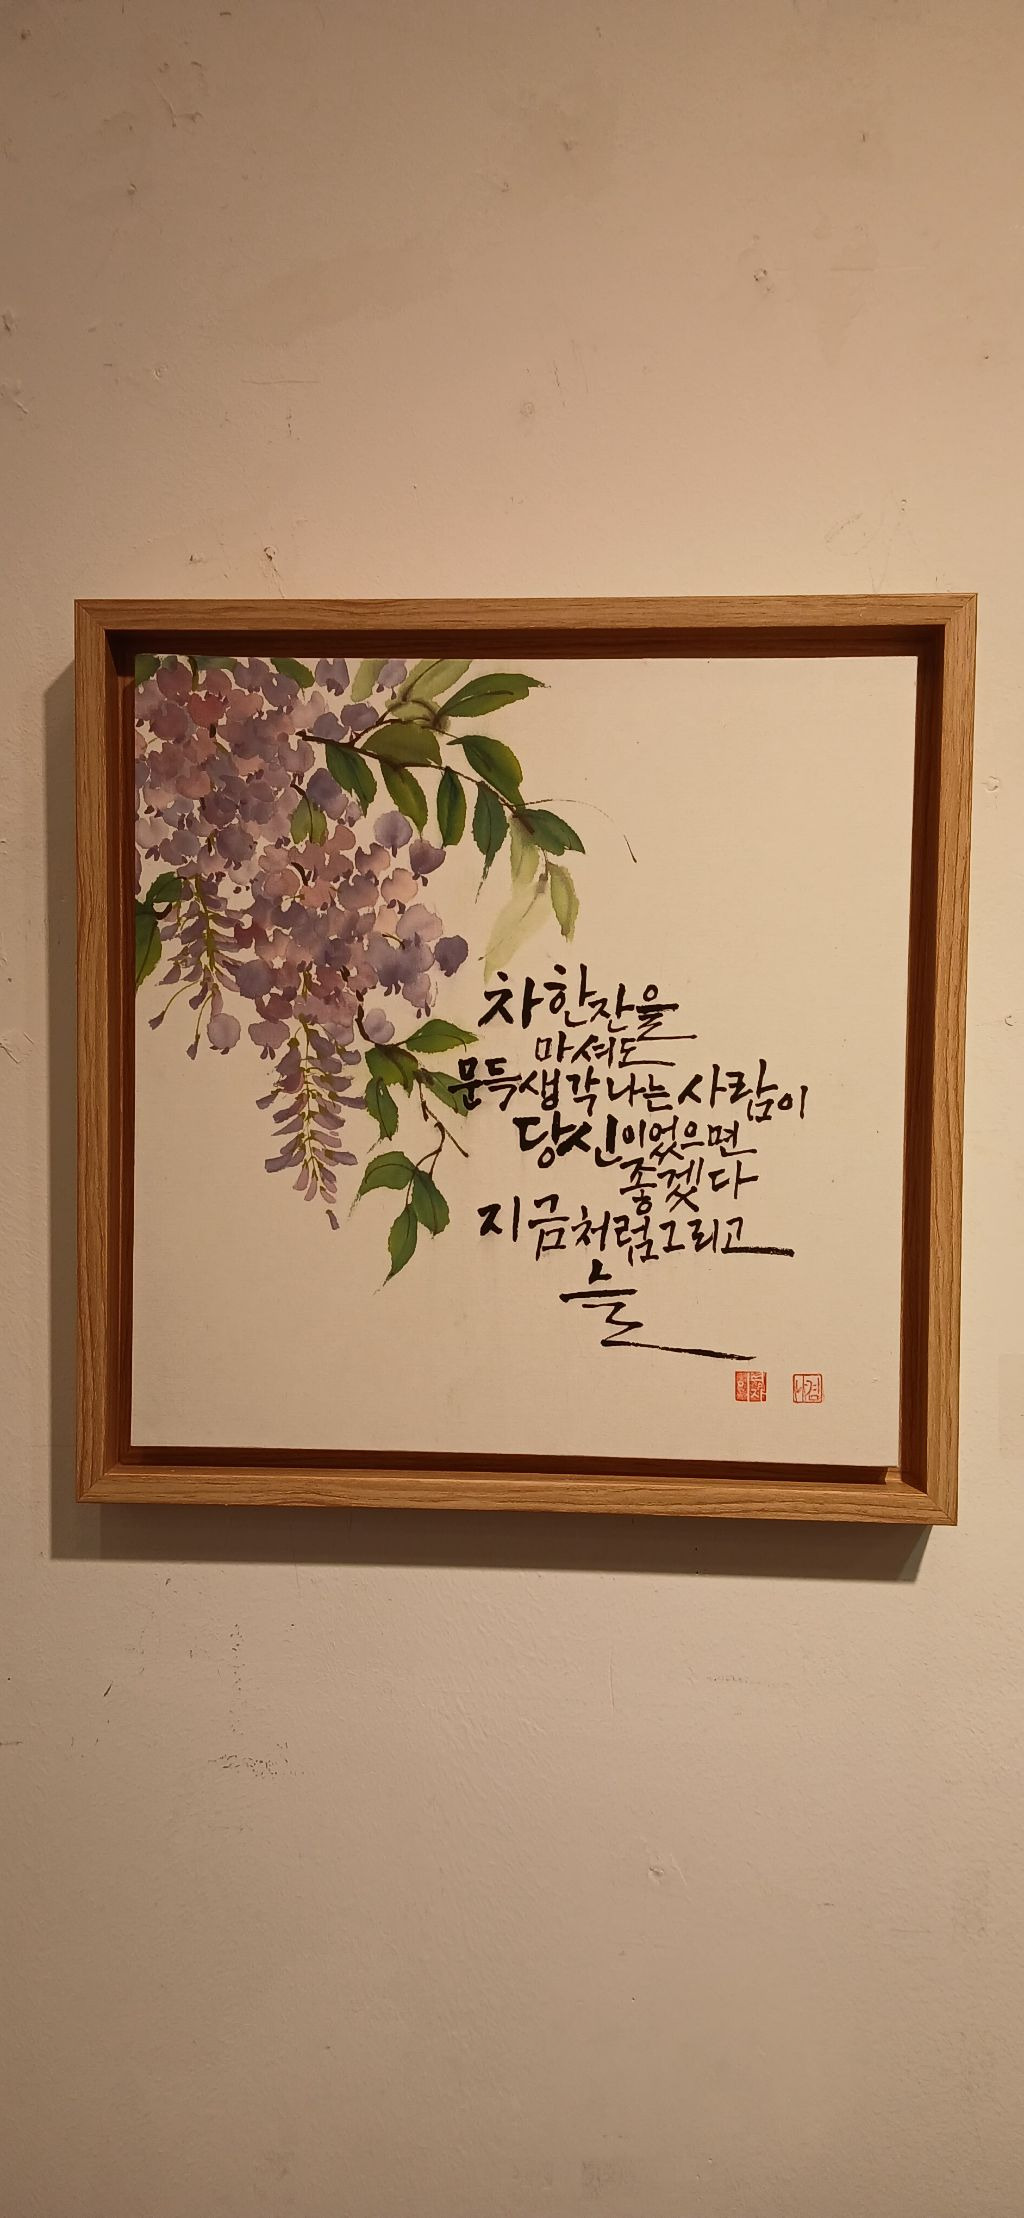 차 한잔을
마셔도
문득 생각나는 사람이
당신이었으면
좋겠다
지금처럼 그리고
늘